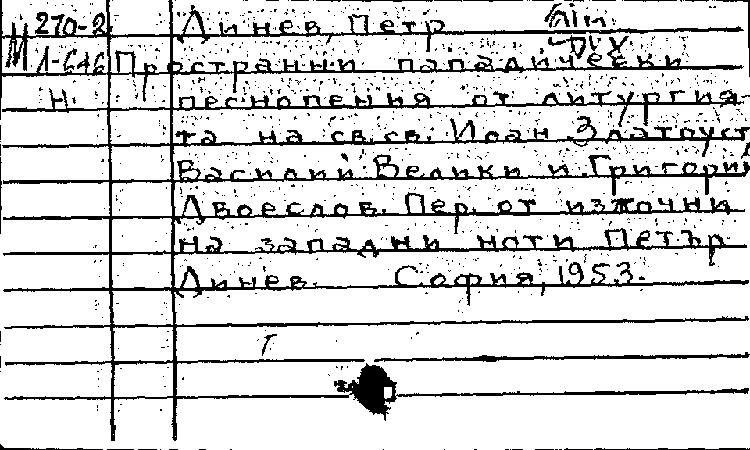 270-2 Динев, Петр
М Л-646 Пространни пападически
Н. песнопения от литургия-
та на св.св. Иоан Златоуст,
Василий Велики и Григорий
Двоеслов. Пер. от източни
на западни ноти Петър
Динев. София, 1953.
Т